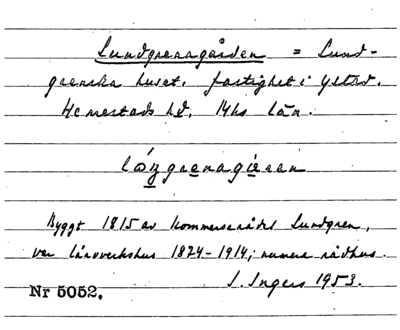 Lundgrenagården = Lund-
grenska huset, fastighet i Ystad.
Hemestads hd. Mhs län.
Byggt 1815 av kommerserådet Lundgren,
var läroverkshus 1874-1914; numera rådhus.
I. Ingers 1953.
Nr 5052.